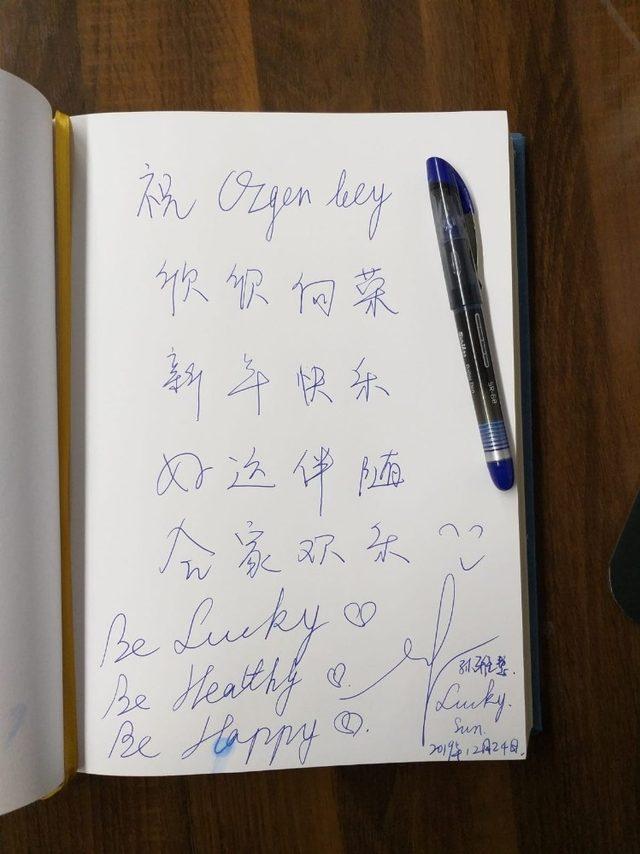 祝 Ozgen bey
欣欣向荣
新年快乐
好运伴随
合家欢乐
Be Lucky
Be Healthy
Be Happy
Lucky.
Sun.
2019年12月24日.
SR-68